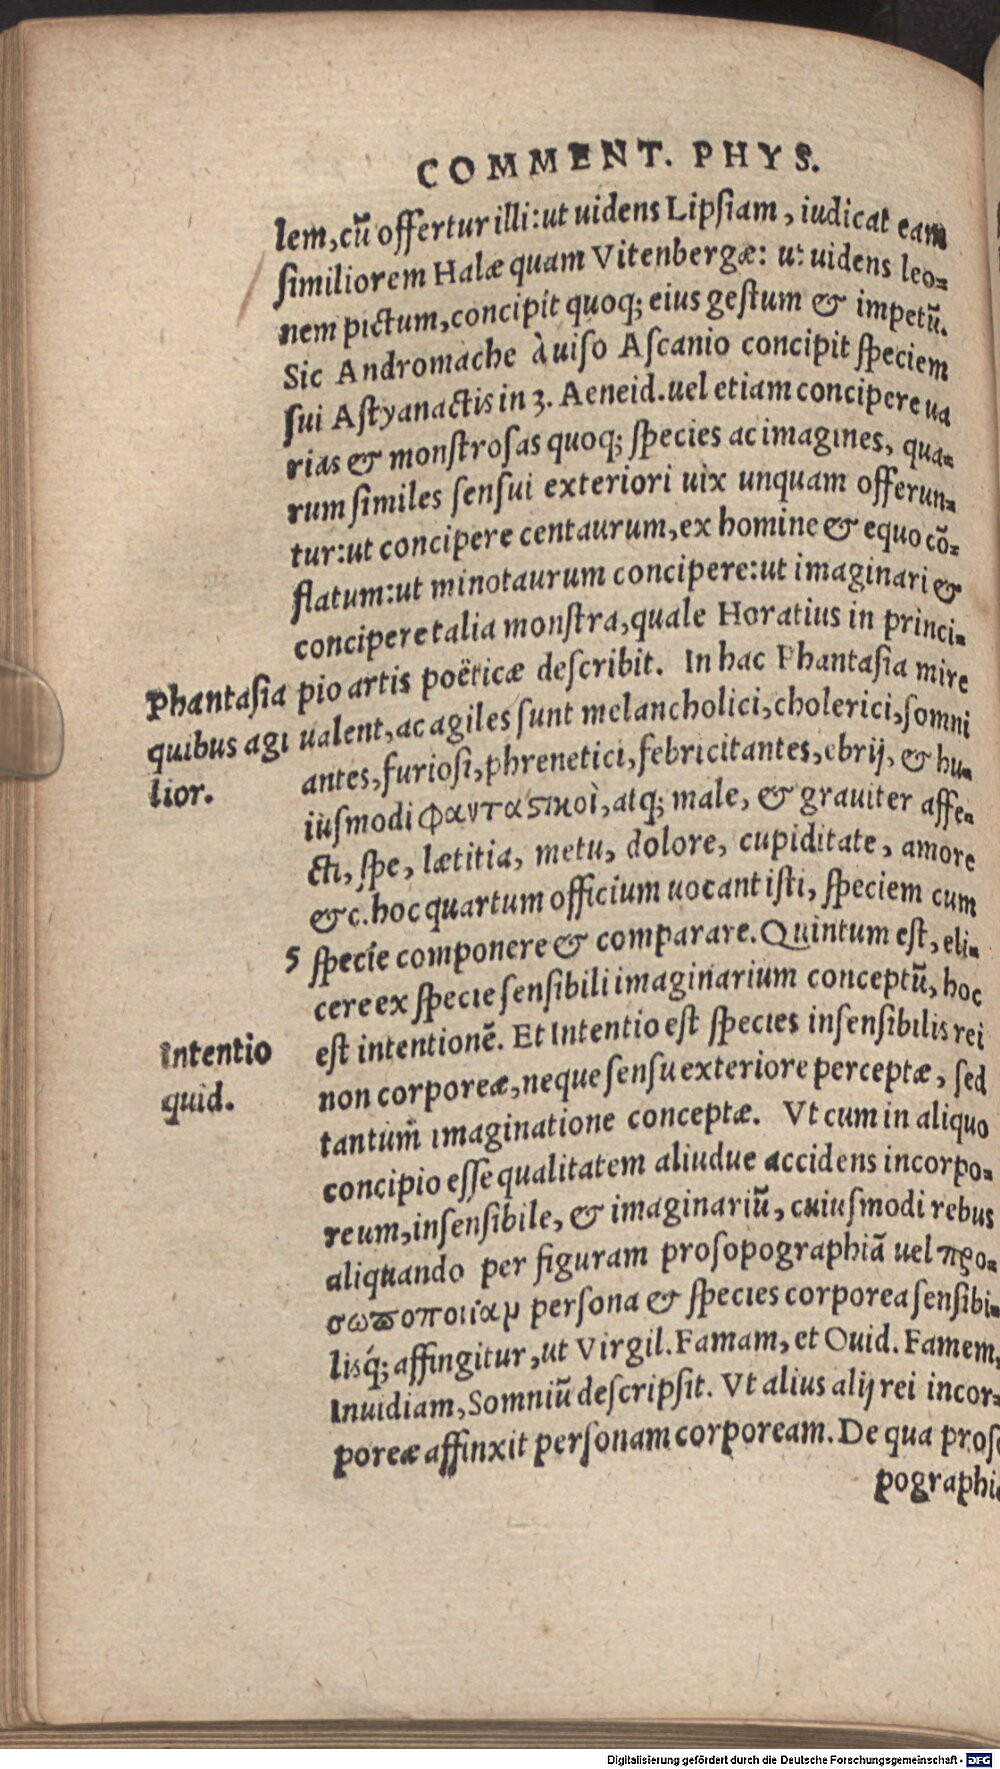 COMMENT. PHYS.
lem, cũ offertur illi: ut uidens Lipsiam, iudicat eam
similiorem Halæ quam Vitenbergæ: ut uidens leo-
nem pictum, concipit quoq; eius gestum & impetũ.
Sic Andromache à uiso Ascanio concipit speciem
sui Astyanactis in 3. Aeneid. uel etiam concipere ua
rias & monstrosas quoq; species ac imagines, qua-
rum similes sensui exteriori uix unquam offerun-
tur: ut concipere centaurum, ex homine & equo cõ-
flatum: ut minotaurum concipere: ut imaginari &
concipere talia monstra, quale Horatius in princi-
pio artis poëticæ describit. In hac Phantasia mire
Phantasia
quibus agi
lior.
ualent, ac agiles sunt melancholici, cholerici, somni
antes, furiosi, phrenetici, febricitantes, ebrij, & hu-
iusmodi φανταστικοὶ, atq; male, & grauiter affe-
cti, spe, lætitia, metu, dolore, cupiditate, amore
&c. hoc quartum officium uocant isti, speciem cum
5 specie componere & comparare. Quintum est, eli-
cere ex specie sensibili imaginarium conceptũ, hoc
est intentionẽ. Et Intentio est species insensibilis rei
Intentio
quid.
non corporeæ, neque sensu exteriore perceptæ, sed
tantum̃ imaginatione conceptæ. Vt cum in aliquo
concipio esse qualitatem aliudue accidens incorpo-
reum, insensibile, & imaginariũ, cuiusmodi rebus
aliquando per figuram prosopographiã uel προ-
σωποποιίαμ persona & species corporea sensibi-
lisq́; affingitur, ut Virgil. Famam, et Ouid. Famem,
Inuidiam, Somniũ descripsit. Vt alius alij rei incor-
poreæ affinxit personam corpoream. De qua proso
pographia
Digitalisierung gefördert durch die Deutsche Forschungsgemeinschaft - DFG